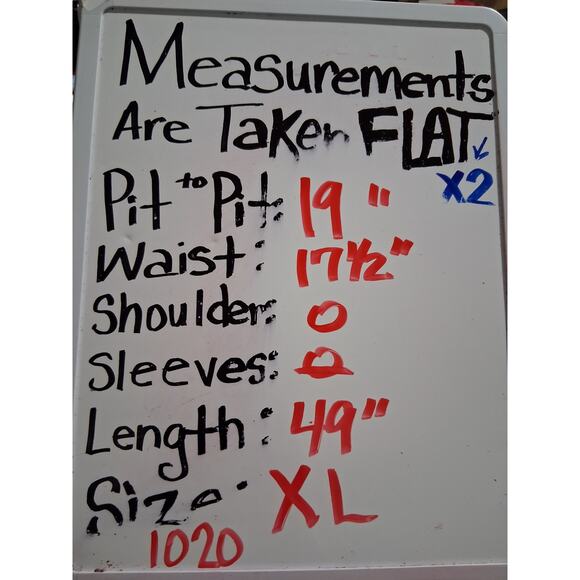 Measurements
Are Taken FLAT
x2
Pit to Pit: 19"
Waist: 17½"
Shoulder: 0
Sleeves: 0
Length: 49"
Size: XL
1020